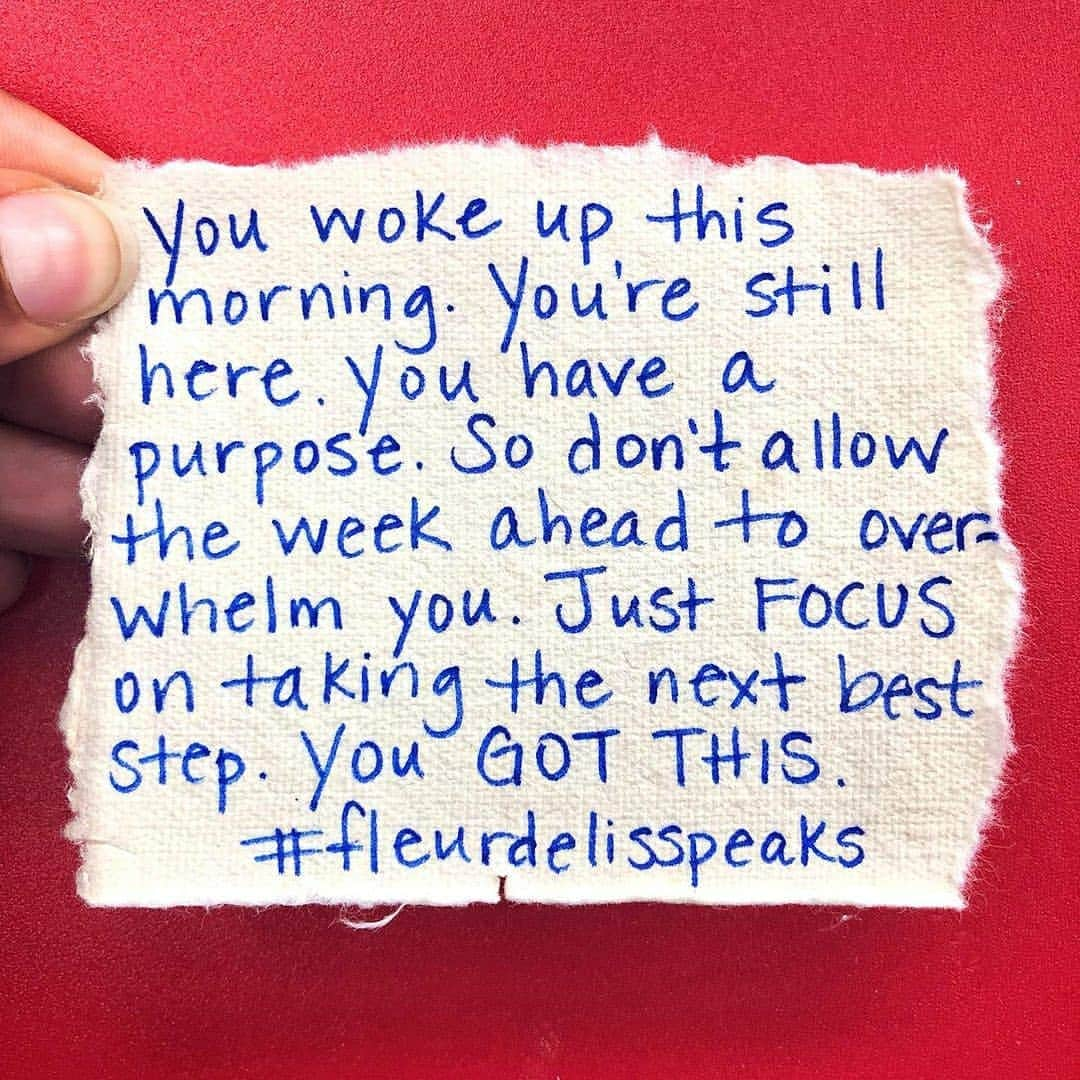 You woke up this
morning. You're still
here. You have a
purpose. So don't allow
the week ahead to over-
whelm you. Just FOCUS
on taking the next best
step. You GOT THIS.
#fleurdelisspeaks